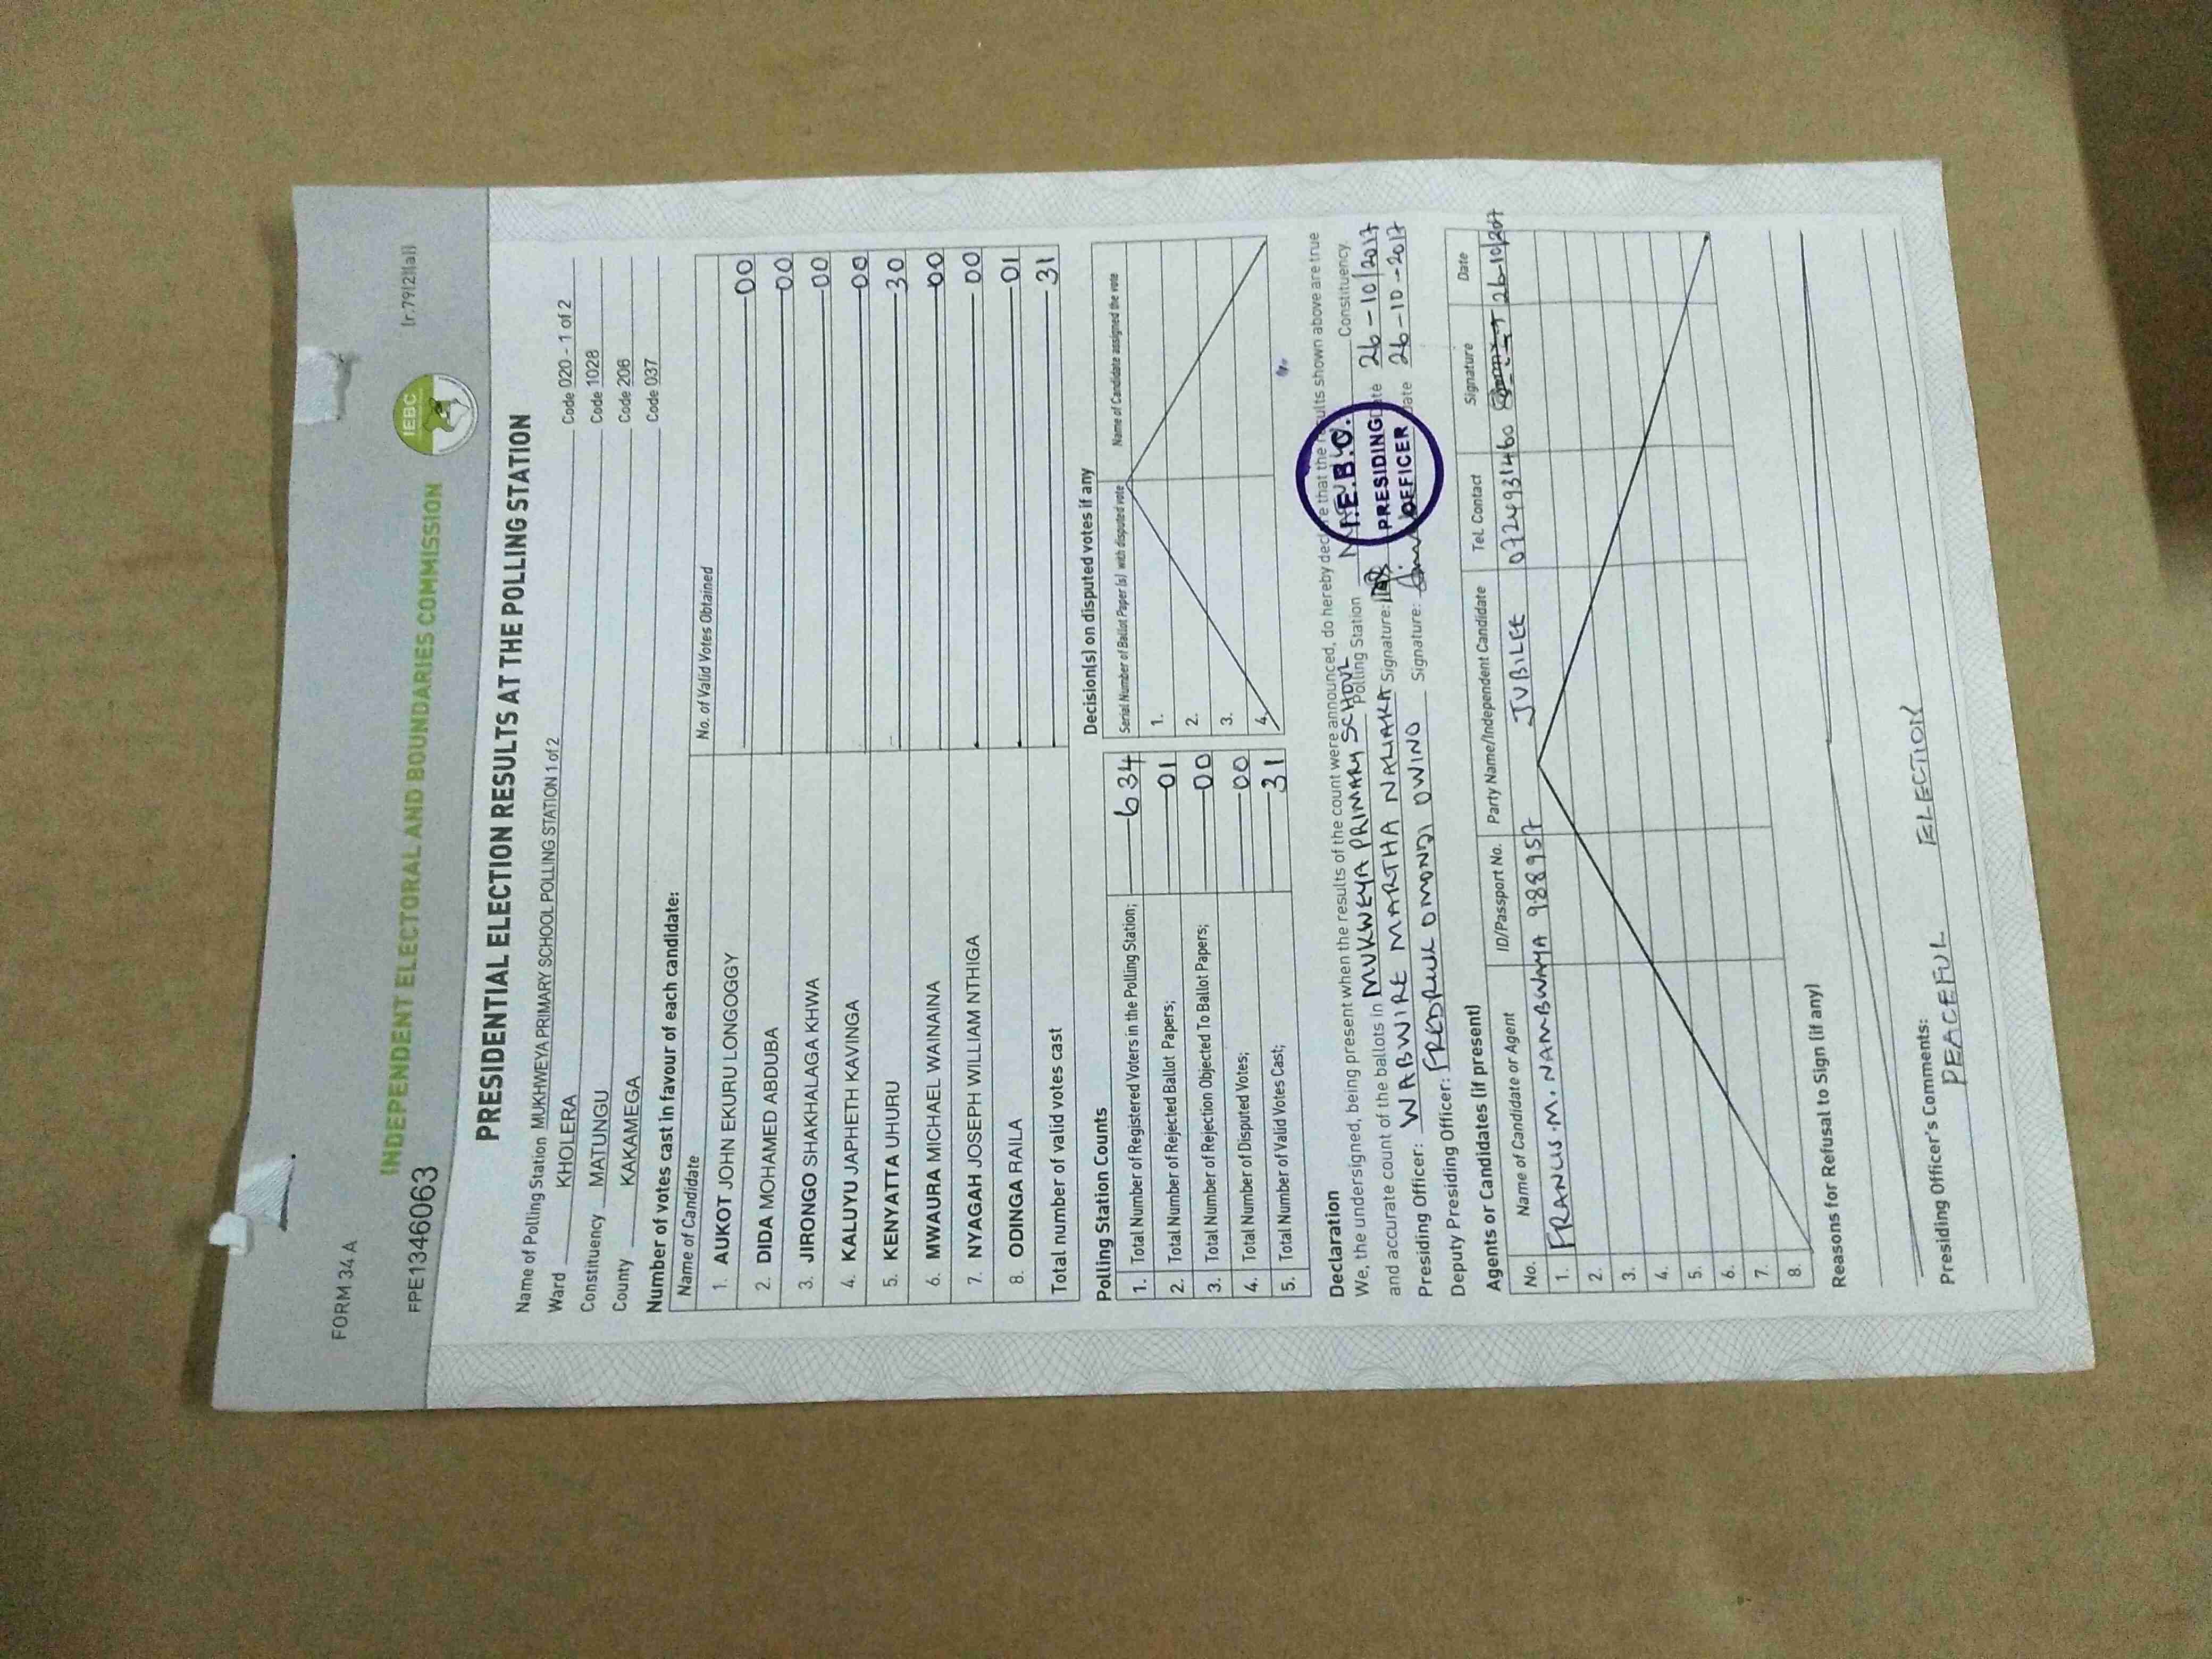 FORM 34 A
(r.79(2)(a))
FPE1346063
IEBC
INDEPENDENT ELECTORAL AND BOUNDARIES COMMISSION
PRESIDENTIAL ELECTION RESULTS AT THE POLLING STATION
Name of Polling Station MUKHWEYA PRIMARY SCHOOL POLLING STATION 1 of 2 Code 020 - 1 of 2
Ward KHOLERA Code 1028
Constituency MATUNGU Code 206
County KAKAMEGA Code 037
Number of votes cast in favour of each candidate:
Name of Candidate No. of Valid Votes Obtained
1. AUKOT JOHN EKURU LONGOGGY 00
2. DIDA MOHAMED ABDUBA 00
3. JIRONGO SHAKHALAGA KHWA 00
4. KALUYU JAPHETH KAVINGA 00
5. KENYATTA UHURU 30
6. MWAURA MICHAEL WAINAINA 00
7. NYAGAH JOSEPH WILLIAM NTHIGA 00
8. ODINGA RAILA 01
Total number of valid votes cast 31
Polling Station Counts
1. Total Number of Registered Voters in the Polling Station; 634
2. Total Number of Rejected Ballot Papers; 01
3. Total Number of Rejection Objected To Ballot Papers; 00
4. Total Number of Disputed Votes; 00
5. Total Number of Valid Votes Cast; 31
Decision(s) on disputed votes if any
Serial Number of Ballot Paper (s) with disputed vote Name of Candidate assigned the vote
1.
2.
3.
4.
Declaration
We, the undersigned, being present when the results of the count were announced, do hereby declare that the results shown above are true
and accurate count of the ballots in MUKWEYA PRIMARY SCHOOL Polling Station Constituency.
Presiding Officer: WABWIRE MARTHA NALIAKA Signature: Date 26-10/2017
Deputy Presiding Officer: FREDRICK OMONDI OWINO Signature: Date 26-10-2017
I.E.B.C.
PRESIDING
OFFICER
Agents or Candidates (if present)
No. Name of Candidate or Agent ID/Passport No. Party Name/Independent Candidate Tel. Contact Signature Date
1. FRANCIS.M.NAMBWAYA 988957 JUBILEE 0724931460 26-10/2017
2.
3.
4.
5.
6.
7.
8.
Reasons for Refusal to Sign (if any)
Presiding Officer's Comments:
PEACEFUL ELECTION